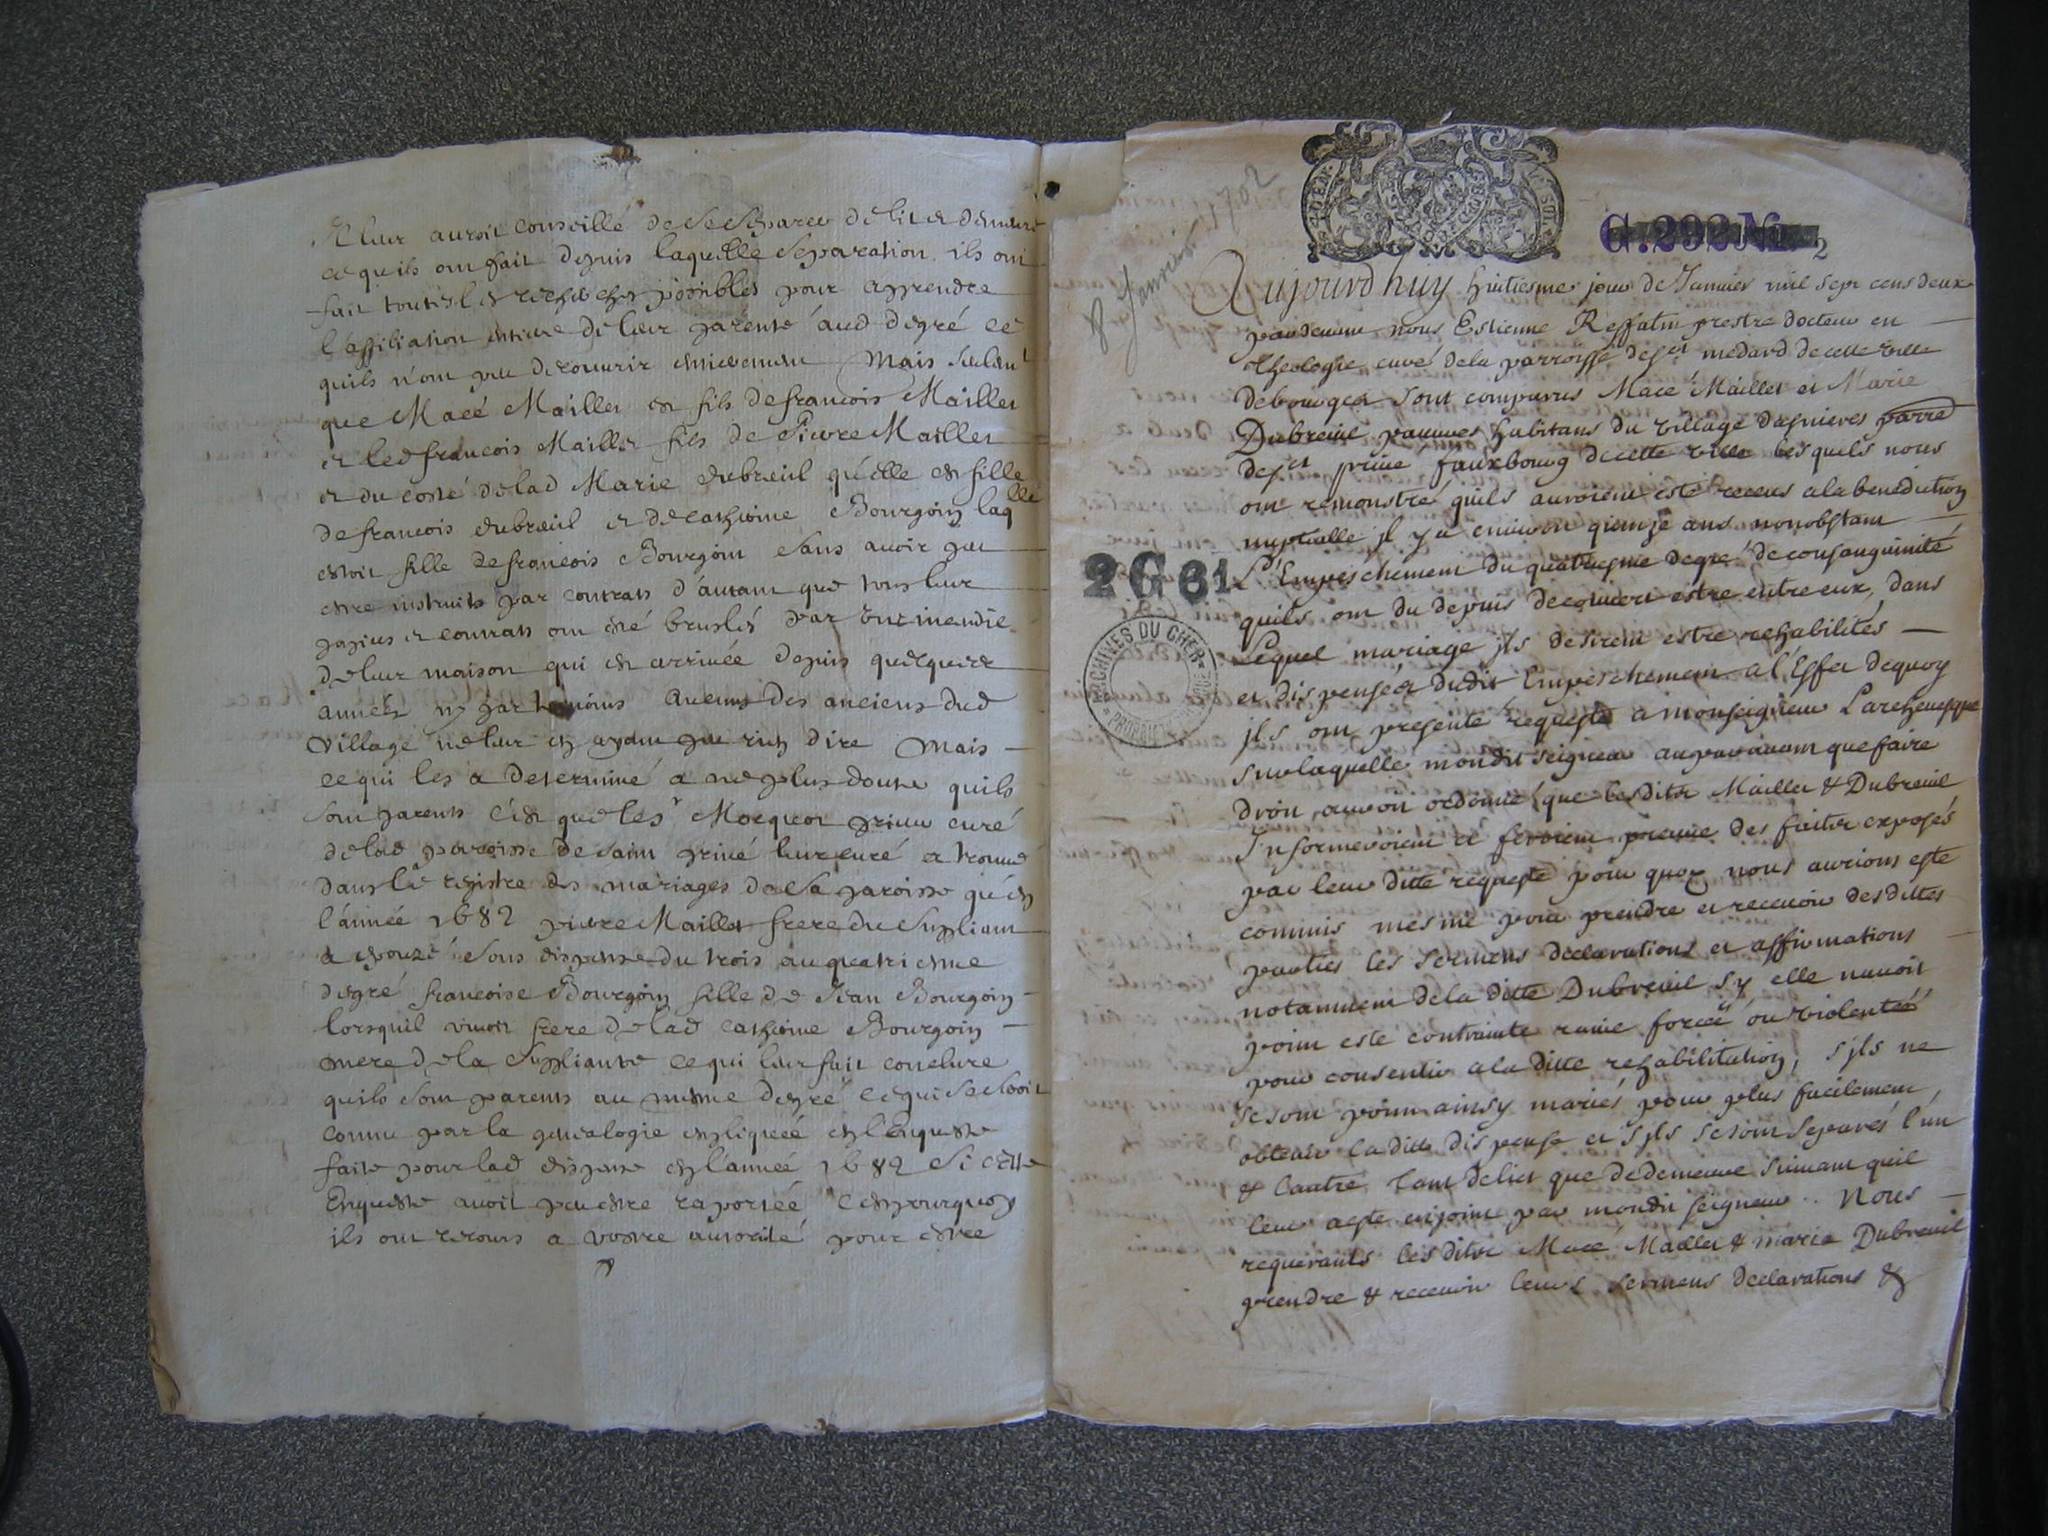 Et leur auroit conseillé de se separer de lit et demeure
ce quils ont fait depuis laquelle separation ils ont
fait toutes les recherches possibles pour apprendre
l'affiliation entiere de leur parenté aud degré ce
quils n'ont peu decouvrir entierement Mais seulemt
que Macé Maillet est fils de francois Maillet
et led francois Maillet fils de Pierre Maillet
et du costé de lad Marie dubreuil qu'elle est fille
de francois dubreuil et de catherine Bourgoin laqlle
estoit fille de francois Bourgoin sans avoir peu
estre instruits par contrats d'autant que tous leur
papiers et contrats ont esté bruslés par un incendie
de leur maison qui est arrivée depuis quelques
années ny par temoins aucuns des anciens dud
village ne leur en ayant peu rien dire Mais
ce qui les a determiné a ne plus douter quils
sont parents c'est que le sr Mocquot prieur curé
de lad paroisse de saint privé leur curé a trouvé
dans le registre des mariages de sa paroisse qu'en
l'année 1682 pierre Maillet frere du supliant
a epouzé sous dispense du trois au quatriesme
degré francoise Bourgoin fille de Jean Bourgoin
lorsquil vivoit frere de lad catherine Bourgoin
mere de la supliante ce qui leur fait conclure
quils sont parents au mesme degré ce qui se
connu par la genealogie expliquée en l'Enqueste
faite pour lad dispense en l'année 1682 si cette
Enqueste avoit peu estre raportée C'est pourquoy
ils ont recours a vostre autorité pour estre
1702
8 Janvier
G.292 N
2
2G 61
ARCHIVES DU CHER
PROPRIÉTÉ PUBLIQUE
Aujourdhuy huitiesme jour de Janvier mil sept cens deux
pardevant nous Estienne Reffatin prestre docteur en
theologie curé de la parroisse de st medard de cette ville
de bourges sont comparus Macé Maillet et Marie
Dubreuil pauvres habitans du village dasnieres parre
de st privé fauxbourg de cette ville lesquels nous
ont remonstré quils auroient esté receus a la benediction
nuptialle il y a environ quinze ans nonobstant
L'Empeschement du quatriesme degré de consanguinité
quils ont du depuis decouvert estre entre eux, dans
Lequel mariage ils desirent estre rehabilités
et dispensés dudit Empeschement a l'Effet dequoy
ils ont presenté requeste a monseigneur Larchevesque
sur laquelle mondit seigneur auparavant que faire
droit auroit ordonné que lesdits Maillet & Dubreuil
Informeroient et feroient preuve des faits exposés
par leur ditte requeste pour quoy nous aurions esté
commis mesme pour prendre et recevoir desdittes
parties les sermens declarations et affirmations
notamment de la ditte Dubreuil sy elle navoit
point esté contrainte ravie forcée ou violentée
pour consentir a la ditte rehabilitation, s'ils ne
se sont point ainsy mariés pour plus facilement
obtenir la ditte dispense et s'ils se sont separés l'un
& lautre tant de lict que de demeure suivant quil
leur a esté enjoint par mondit seigneur.. Nous
requerants lesdits Macé Maillet & marie Dubreuil
prendre & recevoir leurs sermens declarations &